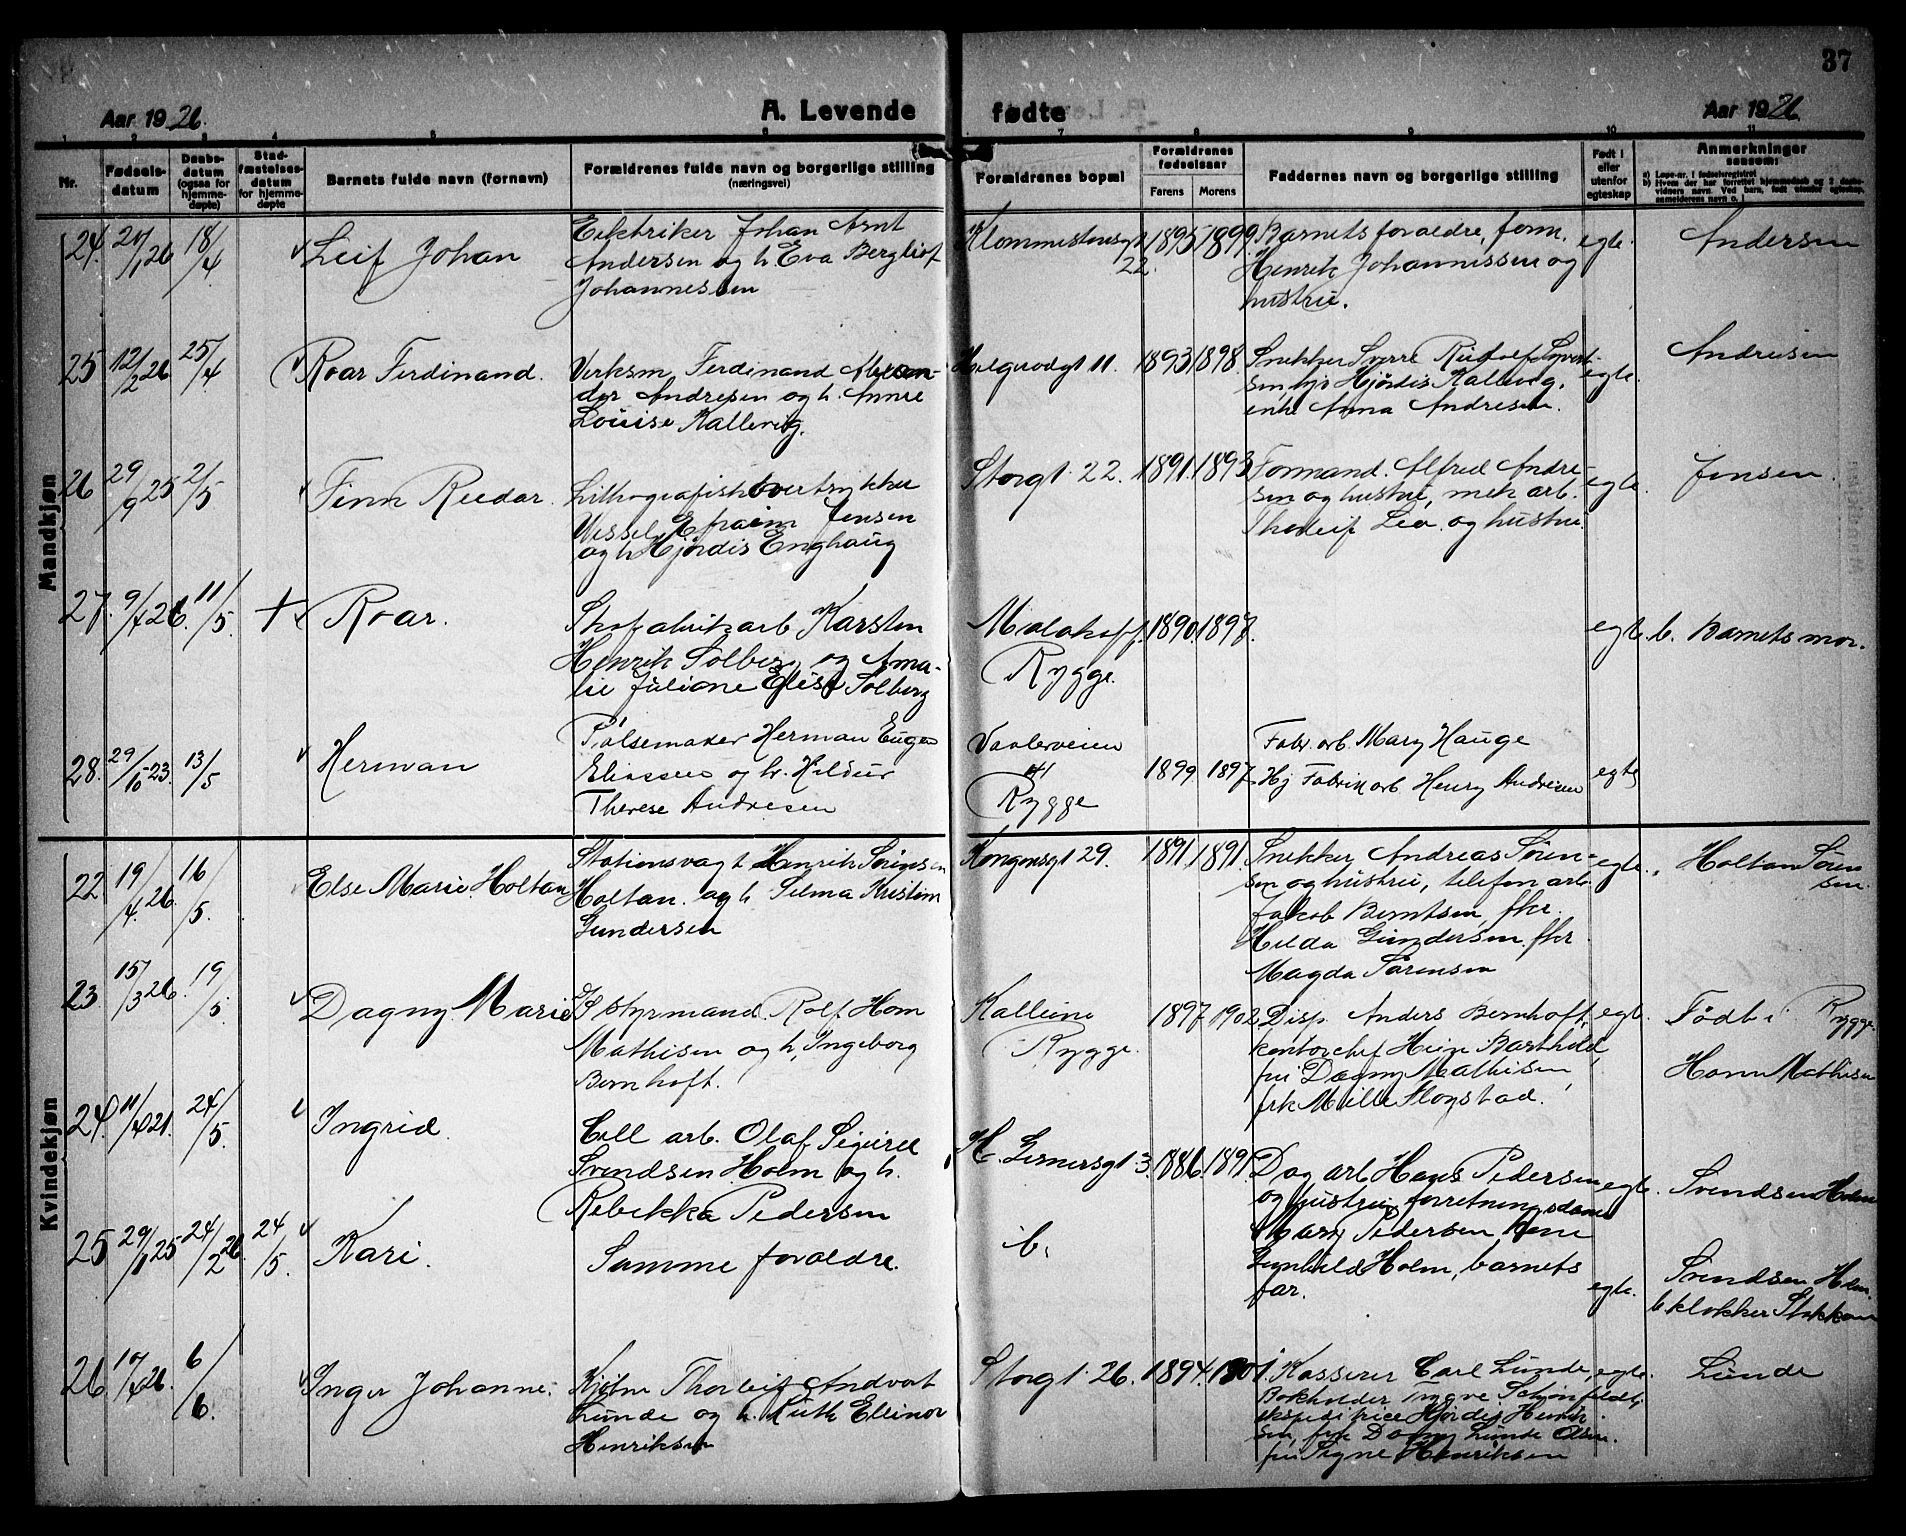 37
Aar 1926.
A. Levende
fødte
Aar 1926.
1 2 3 4 5 6 7 8 9 10 11
Nr.
Fødsels-
datum
Daabs-
datum
(ogsaa for
hjemme-
døpte)
Stad-
fæstelses-
datum
for hjemme-
døpte
Barnets fulde navn (fornavn)
Forældrenes fulde navn og borgerlige stilling
(næringsvei)
Forældrenes bopæl
Forældrenes
fødselsaar
Farens
Morens
Faddernes navn og borgerlige stilling
Født i
eller
utenfor
egteskap
Anmerkninger
saasom:
a) Løpe-nr. i fødselsregistret
b) Hvem der har forrettet hjemmedaab og 2 daabs-
vidners navn. Ved barn, født utenfor egteskap,
anmelderens navn o. l.
Mandkjøn
24. 20/1 26 18/4
Leif Johan
Elektriker Johan Arnt
Andersen og h. Eva Bergliot
Johannessen
22.
1895 1899.
Barnets forældre, form.
Henrik Johannissen og
hustru.
egte.
Andersen
25 12/2 26 25/4
Roar Ferdinand.
Verksm. Ferdinand Alexan-
der Andresen og h. Anne
Louise Kallevig.
Helgerødgt 11.
1893 1898.
Snekker Sverre Rudolf Syvert-
sen, hjs Hjørdis Kallevig,
enke Anna Andresen.
egte.
Andresen
26 29/9 25 2/5
Finn Reidar.
Lithografisk overtrykker
Wessel Efraim Jensen
og h Hjørdis Enghaug
Storgt. 22.
1891. 1893
Formand. Alfred Andre-
sen og hustru, mek arb.
Thorleif Lea og hustru
egte.
Jensen.
27. 9/4 26. 11/5.
+ Roar.
Skofabrikarb Karsten
Henrik Solberg og Ama-
lie Juliane Elise Solberg
Malakoff.
Rygge.
1890. 1898.
egte
b. Barnets mor.
28. 29/10 -23. 13/5
Herman
Pølsemaker Herman Eugen
Eliassen og h. Hildur
Therese Andresen
Vaalerveien
41
Rygge
1899 1897
Fabr. arb. Mary Hauge
Hj Fabrik arb Henry Andresen
egte
Kvindekjøn
22 19/4. 26. 16/5.
Else Marie Holtan
Stationsvagt Henrik Sørensen
Holtan og h. Selma Kristine
Gundersen
Kongensgt 29.
1891. 1891.
Snekker Andreas Søren-
sen og hustru, telefon arb.
Jakob Berntsen, frk.
Hilda Gundersen, frk
Magda Sørensen
egte.
Holtan Søren
sen.
23. 15/3 26. 19/5.
Dagny Marie
Styrmand. Rolf Horn
Mathisen og h. Ingeborg
Bernhoft.
Rygge.
1897 1902
Disp. Anders Bernhoft,
kontorchef Hein Barthold,
fru Dagny Mathisen,
frk Mille Flogstad.
egte.
Født i Rygge.
Horn Mathisen
24. 11/4 21. 24/5.
Ingrid.
Cell arb. Olaf Sigurd
Svendsen Holm og h.
Rebekka Pedersen
H. Gernersgt. 3.
1886. 1891
Dag arb Hans Pedersen
og hustru, forretningsdame
Mary Pedersen,
Gunhild Holm, barnets
far.
egte.
Svendsen Holm
25 29/1 25 24/2 26. 24/5.
Kari.
Samme forældre.
b.
egte.
Svendsen Holm.
b. klokker Stokkan
26 10/4 26. 6/6.
Inger Johanne.
Thorleif Andvort
Lunde og h. Ruth Ellinor
Henriksen
Storgt. 26.
1894. 1901.
Kasserer Carl Lunde,
Bokholder Ingve Schønfeldt,
ekspeditrice Hjørdis Henrik-
sen, frk Dagny Lunde Olsen.
fru Signe Henriksen
egte.
Lunde